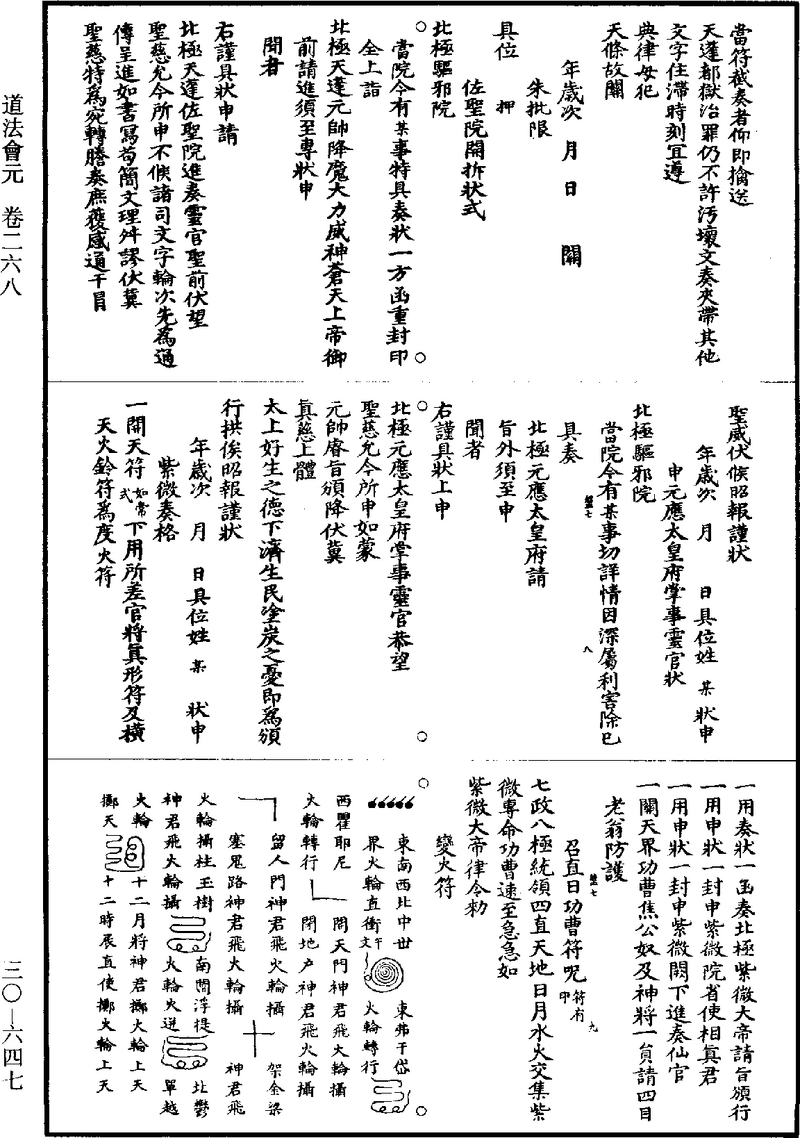 道法會元　卷二六八
三〇—六四七
當符截奏者仰即擒送
天蓬都獄治罪仍不許污壞文奏夾帶其他
文字住滯時刻宜遵
典律毋犯
天條故關
年歲次　月　日　關
朱批限
佐聖院開拆狀式
具位　押
北極驅邪院
當院今有某事特具奏狀一方函重封印
全上詣
北極天蓬元帥降魔大力威神蒼天上帝御
前請進須至專狀申
聞者
右謹具狀申請
北極天蓬佐聖院進奏靈官聖前伏望
聖慈允今所申不候諸司文字輪次先為通
傳呈進如書寫苟簡文理舛謬伏冀
聖慈特為宛轉謄奏庶獲感通干冒
聖威伏候昭報謹狀
年歲次　月　日具位姓　某　狀申
申元應太皇府掌事靈官狀
北極驅邪院
當院今有某事切詳情因深屬利害除已
具奏
北極元應太皇府請
旨外須至申
聞者
右謹具狀上申
北極元應太皇府掌事靈官恭望
聖慈允今所申如蒙
元帥睿旨頒降伏冀
真慈上體
太上好生之德下濟生民塗炭之憂即為頒
行拱俟昭報謹狀
年歲次　月　日具位姓　某　狀申
紫微奏格
一關天符如常式下用所差官將真形符及橫
天火鈴符為度火符
一用奏狀一函奏北極紫微大帝請旨頒行
一用申狀一封申紫微院省使相真君
一用申狀一封申紫微闕下進奏仙官
一關天界功曹焦公奴及神將一員請四目
老翁防護
召直日功曹符呪符有甲
七政八極統領四直天地日月水火交集紫
微專命功曹速至急急如
紫微大帝律令勑
變火符
東南西北中世　東弗于岱
界火輪直衝　火輪轉行
西瞿耶尼　閉天門神君飛火輪攝
火輪轉行　閉地戶神君飛火輪攝
留人門神君飛火輪攝　架金梁
塞鬼路神君飛火輪攝　神君飛
火輪攝柱玉樹　南閻浮提　北鬱
神君飛火輪攝　火輪火迸　單越
火輪　十二月將神君擲火輪上天
擲天　十二時辰直使擲火輪上天